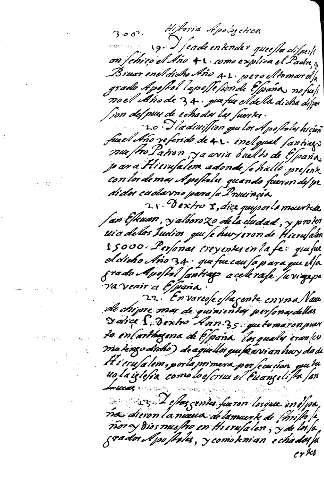 300. Historia Apologetica
19. Y se ha de entender que esta dispersi
on se hiço el Año 41. como explica el Padre
Bruar en el dicho Año 41. pero el tomar el Sa
grado Apostol la posesión de España no fue si
no el Año de 34. que fue el de la dicha disper
sion despues de echadas las suertes.
20. Y la division que los Apostoles hiçieron
fue el Año refendo de 41. en el qual Santiago
nuestro Patron, ya avia buelto de España
para Hierusalem adonde se hallò presente
con los demas Apostoles quando fueron despe
didos cada uno para su Provincia.
21. Dextro I, dice que por la muerte de
San Estevan, y alboroço de la ciudad, y protes
via de los Judios que huyeron de Hierusalem
15000. Personas creyentes en la fe: que fue
el dicho Año 34. que fue causa para que el Sa
grado Apostol Santiago acelerase su viaje pa
ra venir a España.
22. En vaxose esta gente en una Nao
de chipre mas de quinientas personas dellas
y dice I. Dextro Ann. 35. que tomaron puer
to en Carthagena de España los quales eran (co
mo tengo dicho) de aquellos que se avian huydo de
Hierusalem, por la primera persecucion que tu
vo la iglesia como lo escrive el Evangelista San
Lucas.
23. Y estas gentes fueron los que en Espa
ña dieron la nueva de la muerte de Christo se
ñor y Dios nuestro en Hierusalem, y de los sa
grados Apostoles, y como tenian echadas su
ertes